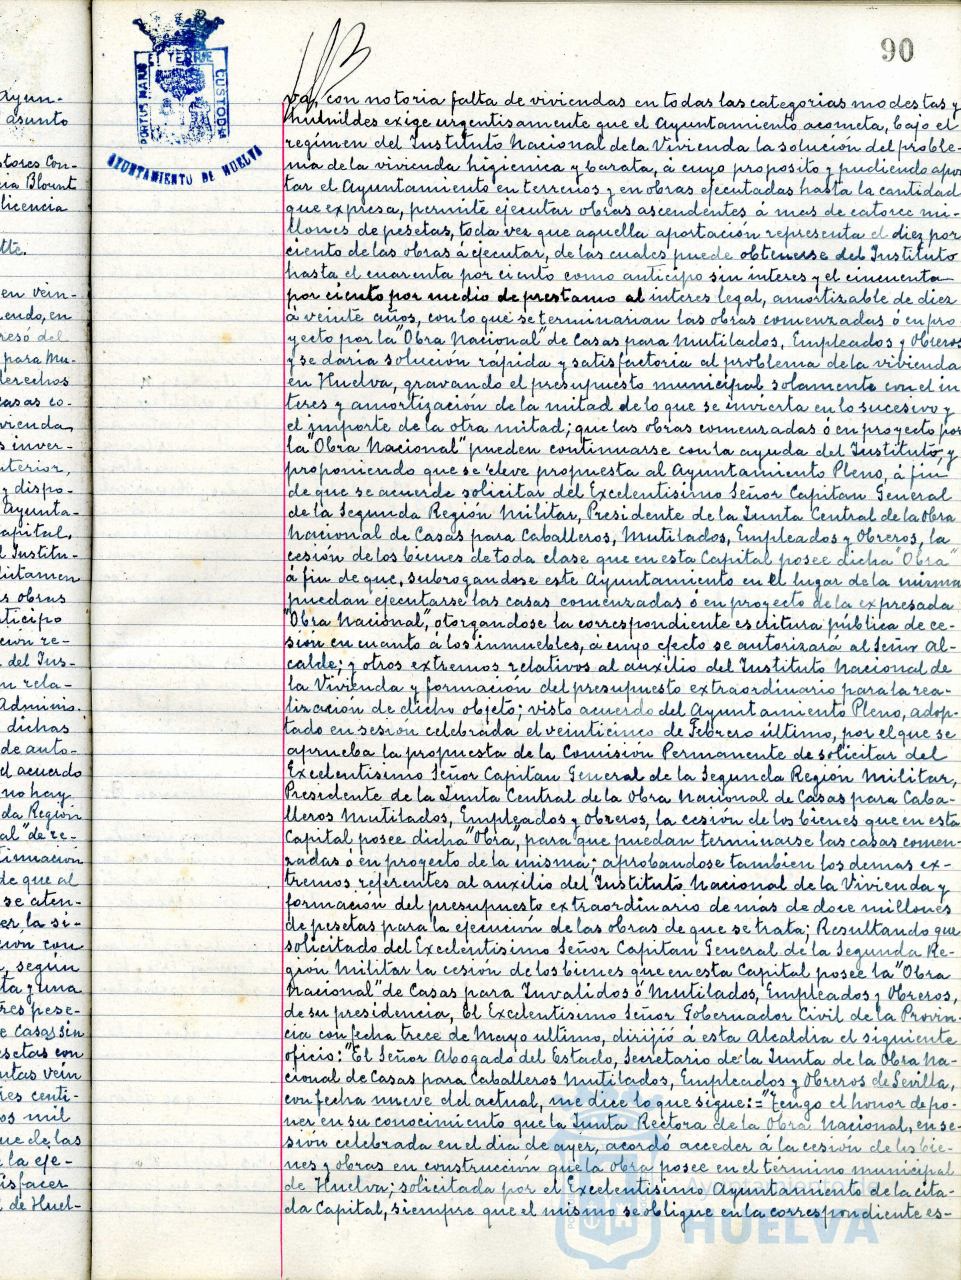 90
PORTUS MARIS ET TERRE CUSTODIA
AYUNTAMIENTO DE HUELVA
va, con notoria falta de viviendas en todas las categorias modestas y
humildes exige urgentisamente que el Ayuntamiento acometa, bajo el
regimen del Instituto Nacional de la Vivienda la solución del proble-
ma de la vivienda higienica y barata, á cuyo proposito y pudiendo apor
tar el Ayuntamiento en terrenos y en obras ejecutadas hasta la cantidad
que expresa, permite ejecutar obras ascendentes á mas de catorce mi-
llones de pesetas, toda vez que aquella aportación representa el diez por
ciento de las obras á ejecutar, de las cuales puede obtenerse del Instituto
hasta el cuarenta por ciento como anticipo sin interes y el cincuenta
por ciento por medio de prestamo al interes legal, amortizable de diez
á veinte años, con lo que se terminarian las obras comenzadas ó en pro
yecto por la "Obra Nacional" de Casas para Mutilados, Empleados y Obreros
y se daria solución rápida y satisfactoria al problema de la vivienda
en Huelva, gravando el presupuesto municipal solamente con el in
teres y amortización de la mitad de lo que se invierta en lo sucesivo y
el importe de la otra mitad; que las obras comenzadas ó en proyecto por
la "Obra Nacional" pueden continuarse con la ayuda del Instituto, y
proponiendo que se eleve propuesta al Ayuntamiento Pleno, á fin
de que se acuerde solicitar del Excelentisimo Señor Capitan General
de la Segunda Región Militar, Presidente de la Junta Central de la Obra
Nacional de Casas para Caballeros, Mutilados, Empleados y Obreros, la
cesión de los bienes de toda clase que en esta Capital posee dicha "Obra"
á fin de que, subrogandose este Ayuntamiento en el lugar de la misma
puedan ejecutarse las casas comenzadas ó en proyecto de la expresada
"Obra Nacional", otorgandose la correspondiente escritura pública de ce-
sión en cuanto á los inmuebles, á cuyo efecto se autorizará al Señor Al-
calde; y otros extremos relativos al auxilio del Instituto Nacional de
la Vivienda y formación del presupuesto extraordinario para la rea-
lizacion de dicho objeto; visto acuerdo del Ayuntamiento Pleno, adop-
tado en sesión celebrada el veinticinco de Febrero último, por el que se
aprueba la propuesta de la Comisión Permanente de solicitar del
Excelentisimo Señor Capitan General de la Segunda Region Militar,
Presidente de la Junta Central de la Obra Nacional de Casas para Caba-
lleros Mutilados, Empleados y Obreros, la cesión de los bienes que en esta
Capital posee dicha "Obra", para que puedan terminarse las casas comen-
zadas ó en proyecto de la misma; aprobandose tambien los demas ex-
tremos referentes al auxilio del Instituto Nacional de la Vivienda y
formación del presupuesto extraordinario de más de doce millones
de pesetas para la ejecución de las obras de que se trata; Resultando que
solicitado del Excelentisimo Señor Capitan General de la Segunda Re-
gión Militar la cesión de los bienes que en esta Capital posee la "Obra
Nacional" de Casas para Invalidos ó Mutilados, Empleados y Obreros,
de su presidencia, el Excelentisimo Señor Gobernador Civil de la Provin-
cia con fecha trece de Mayo ultimo, dirijió á esta Alcaldia el siguiente
oficio: "El Señor Abogado del Estado, Secretario de la Junta de la Obra Na-
cional de Casas para Caballeros Mutilados, Empleados y Obreros de Sevilla,
con fecha nueve del actual, me dice lo que sigue:="Tengo el honor de po-
ner en su conocimiento que la Junta Rectora de la Obra Nacional, en se-
sión celebrada en el dia de ayer, acordó acceder á la cesión de los bie-
nes y obras en construcción que la Obra posee en el término municipal
de Huelva; solicitada por el Excelentisimo Ayuntamiento de la cita-
da Capital, siempre que el mismo se obligue en la correspondiente es-
Ayuntamiento de
HUELVA